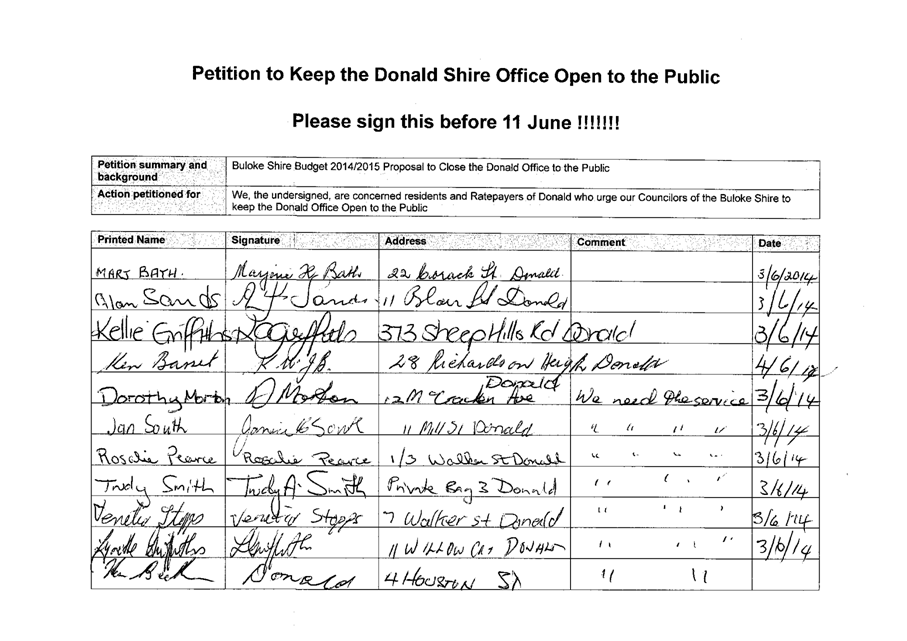 Petition to Keep the Donald Shire Office Open to the Public
Please sign this before 11 June !!!!!!!
Petition summary and background
Buloke Shire Budget 2014/2015 Proposal to Close the Donald Office to the Public
Action petitioned for
We, the undersigned, are concerned residents and Ratepayers of Donald who urge our Councilors of the Buloke Shire to
keep the Donald Office Open to the Public
Printed Name Signature Address Comment Date
MARJ BATH. Marjorie Bath 22 Corack St. Donald. 3/6/2014
Alan Sands Sands 11 Blair St Donald 3/6/14
Kellie Griffiths KGriffiths 373 Sheep Hills Rd Donald 3/6/14
Ken Barset 28 Richardson Donald 4/6/14
Dorothy Morton D Morton 12 McCracken Ave Donald We need the service 3/6/14
Jan South 11 Mill St Donald " " " " 3/6/14
Rosalie Pearce Rosalie Pearce 1/3 Walker St Donald " " " " 3/6/14
Trudy Smith Trudy A. Smith Private Bag 3 Donald " " " 3/6/14
Venetia Stopps Venetia Stopps 7 Walker st Donald " " " 3/6/14
Lynette Griffiths LGriffiths 11 WILLOW DONALD " " " 3/6/14
Ken Donald 4 HOUSTON St " "